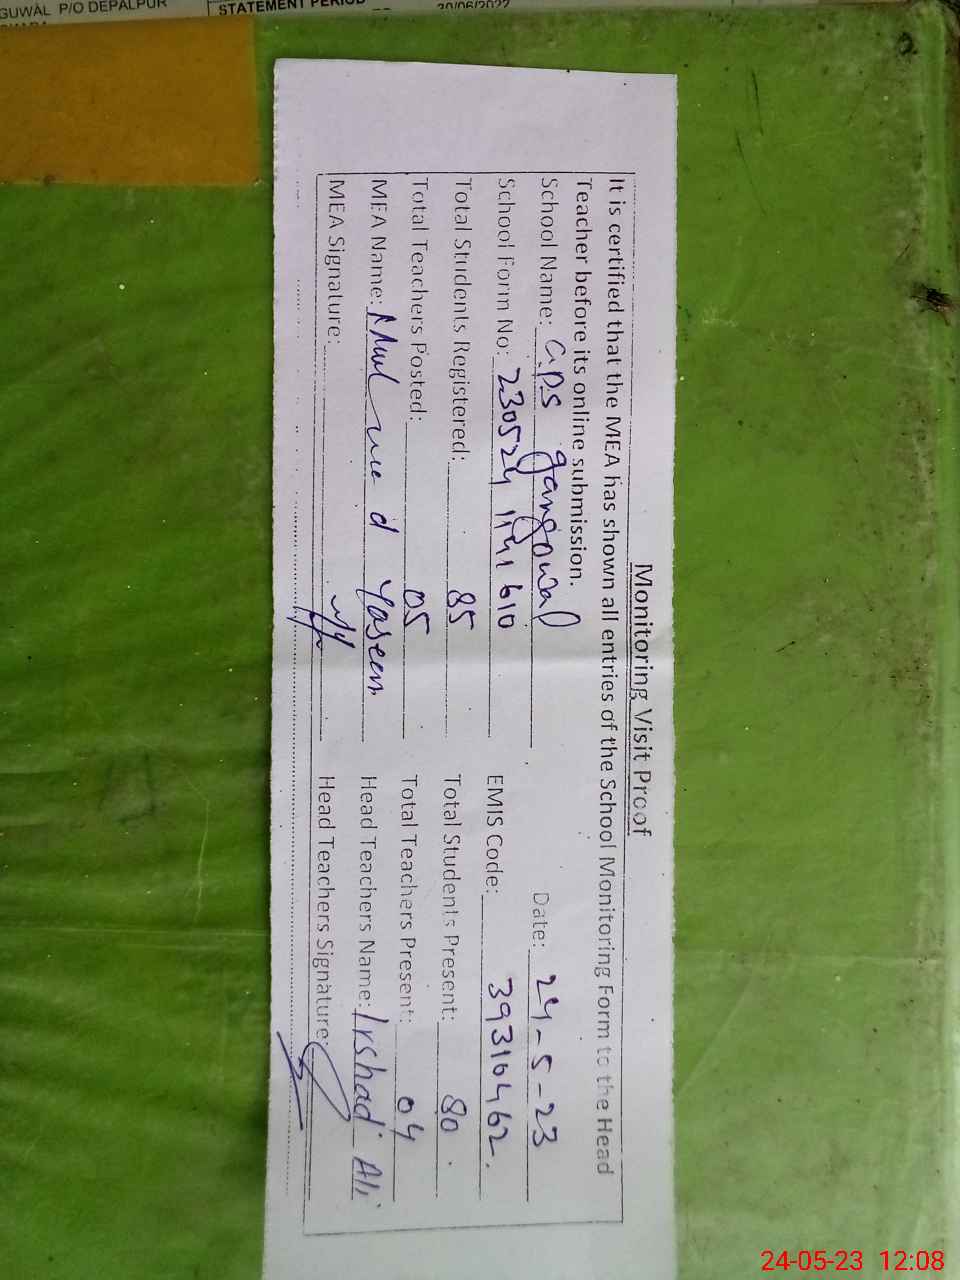 GUWAL P/O DEPALPUR
STATEMENT PERIOD
30/06/2022
Monitoring Visit Proof
It is certified that the MEA has shown all entries of the School Monitoring Form to the Head
Teacher before its online submission.
School Name: GPS gangowal Date: 24-5-23
School Form No: 230524 EMIS Code: 39310462.
Total Students Registered: 85 Total Students Present: 80
Total Teachers Posted: 05 Total Teachers Present: 04
MEA Name: Yaseen Head Teachers Name: Irshad Ali
MEA Signature: Head Teachers Signature:
24-05-23 12:08